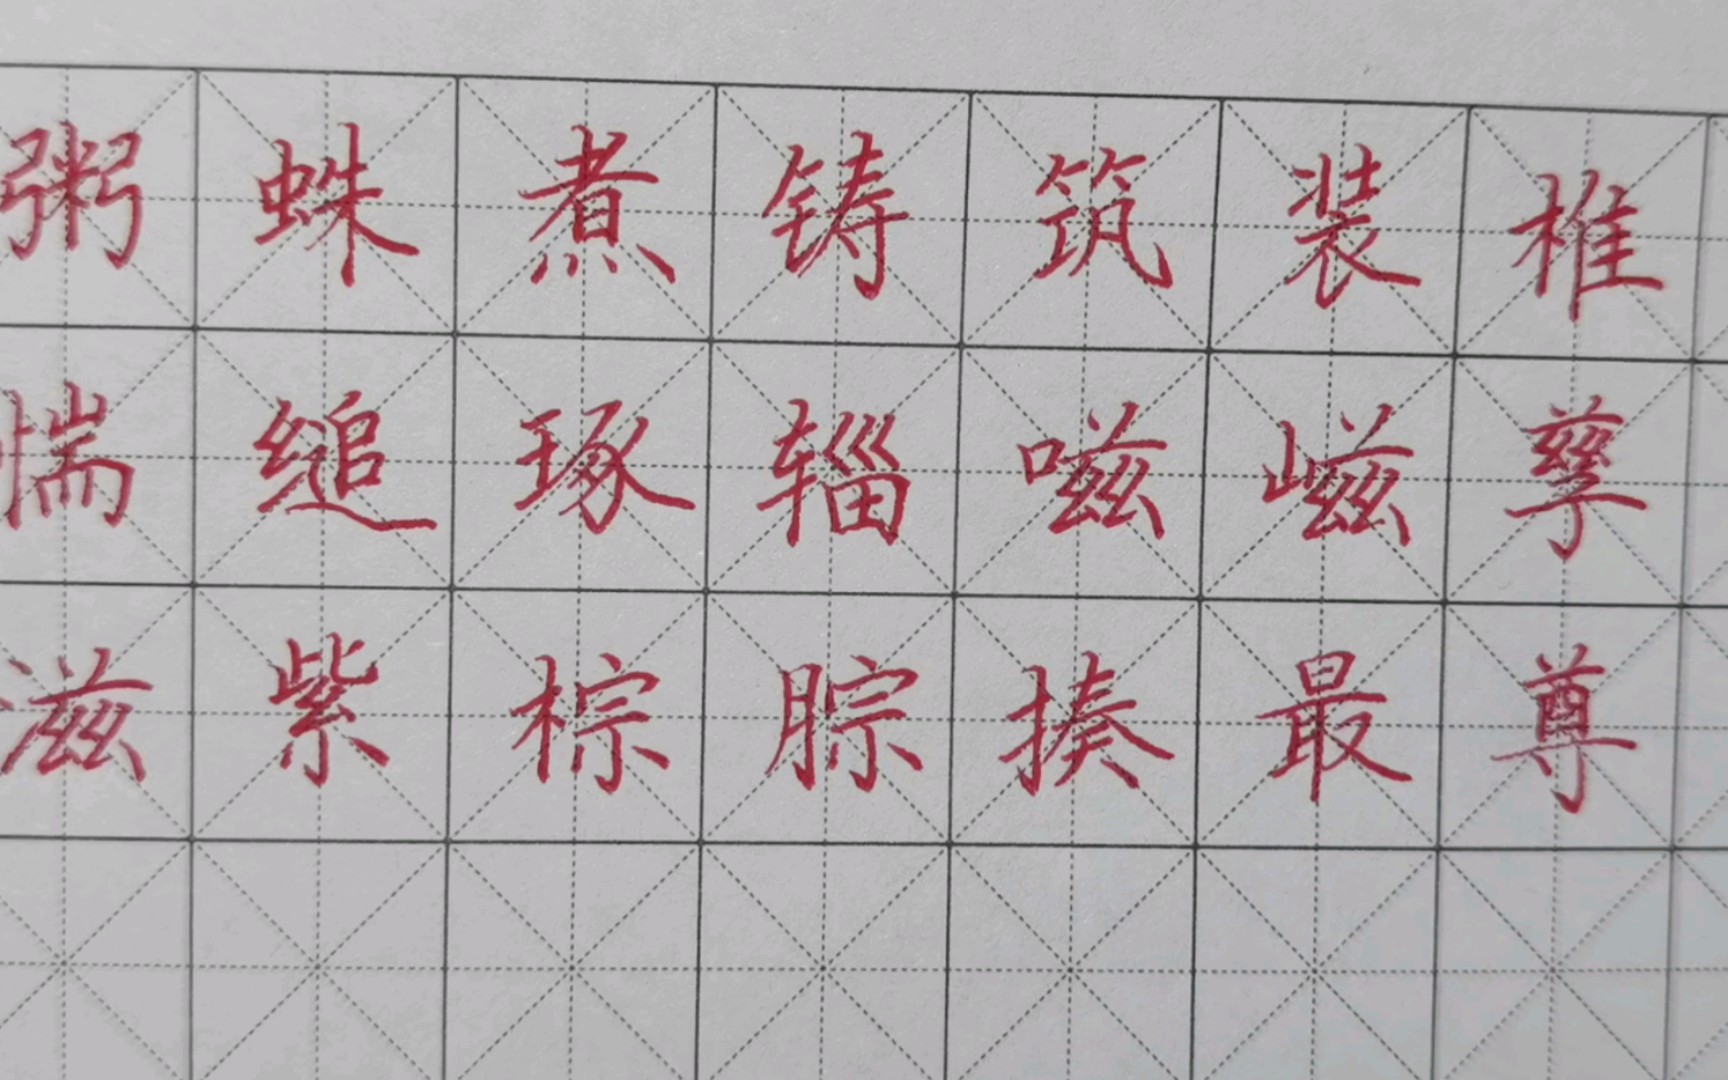 粥蛛煮铸筑装椎
惴缒琢辎嗞嵫孳
滋紫棕腙揍最尊